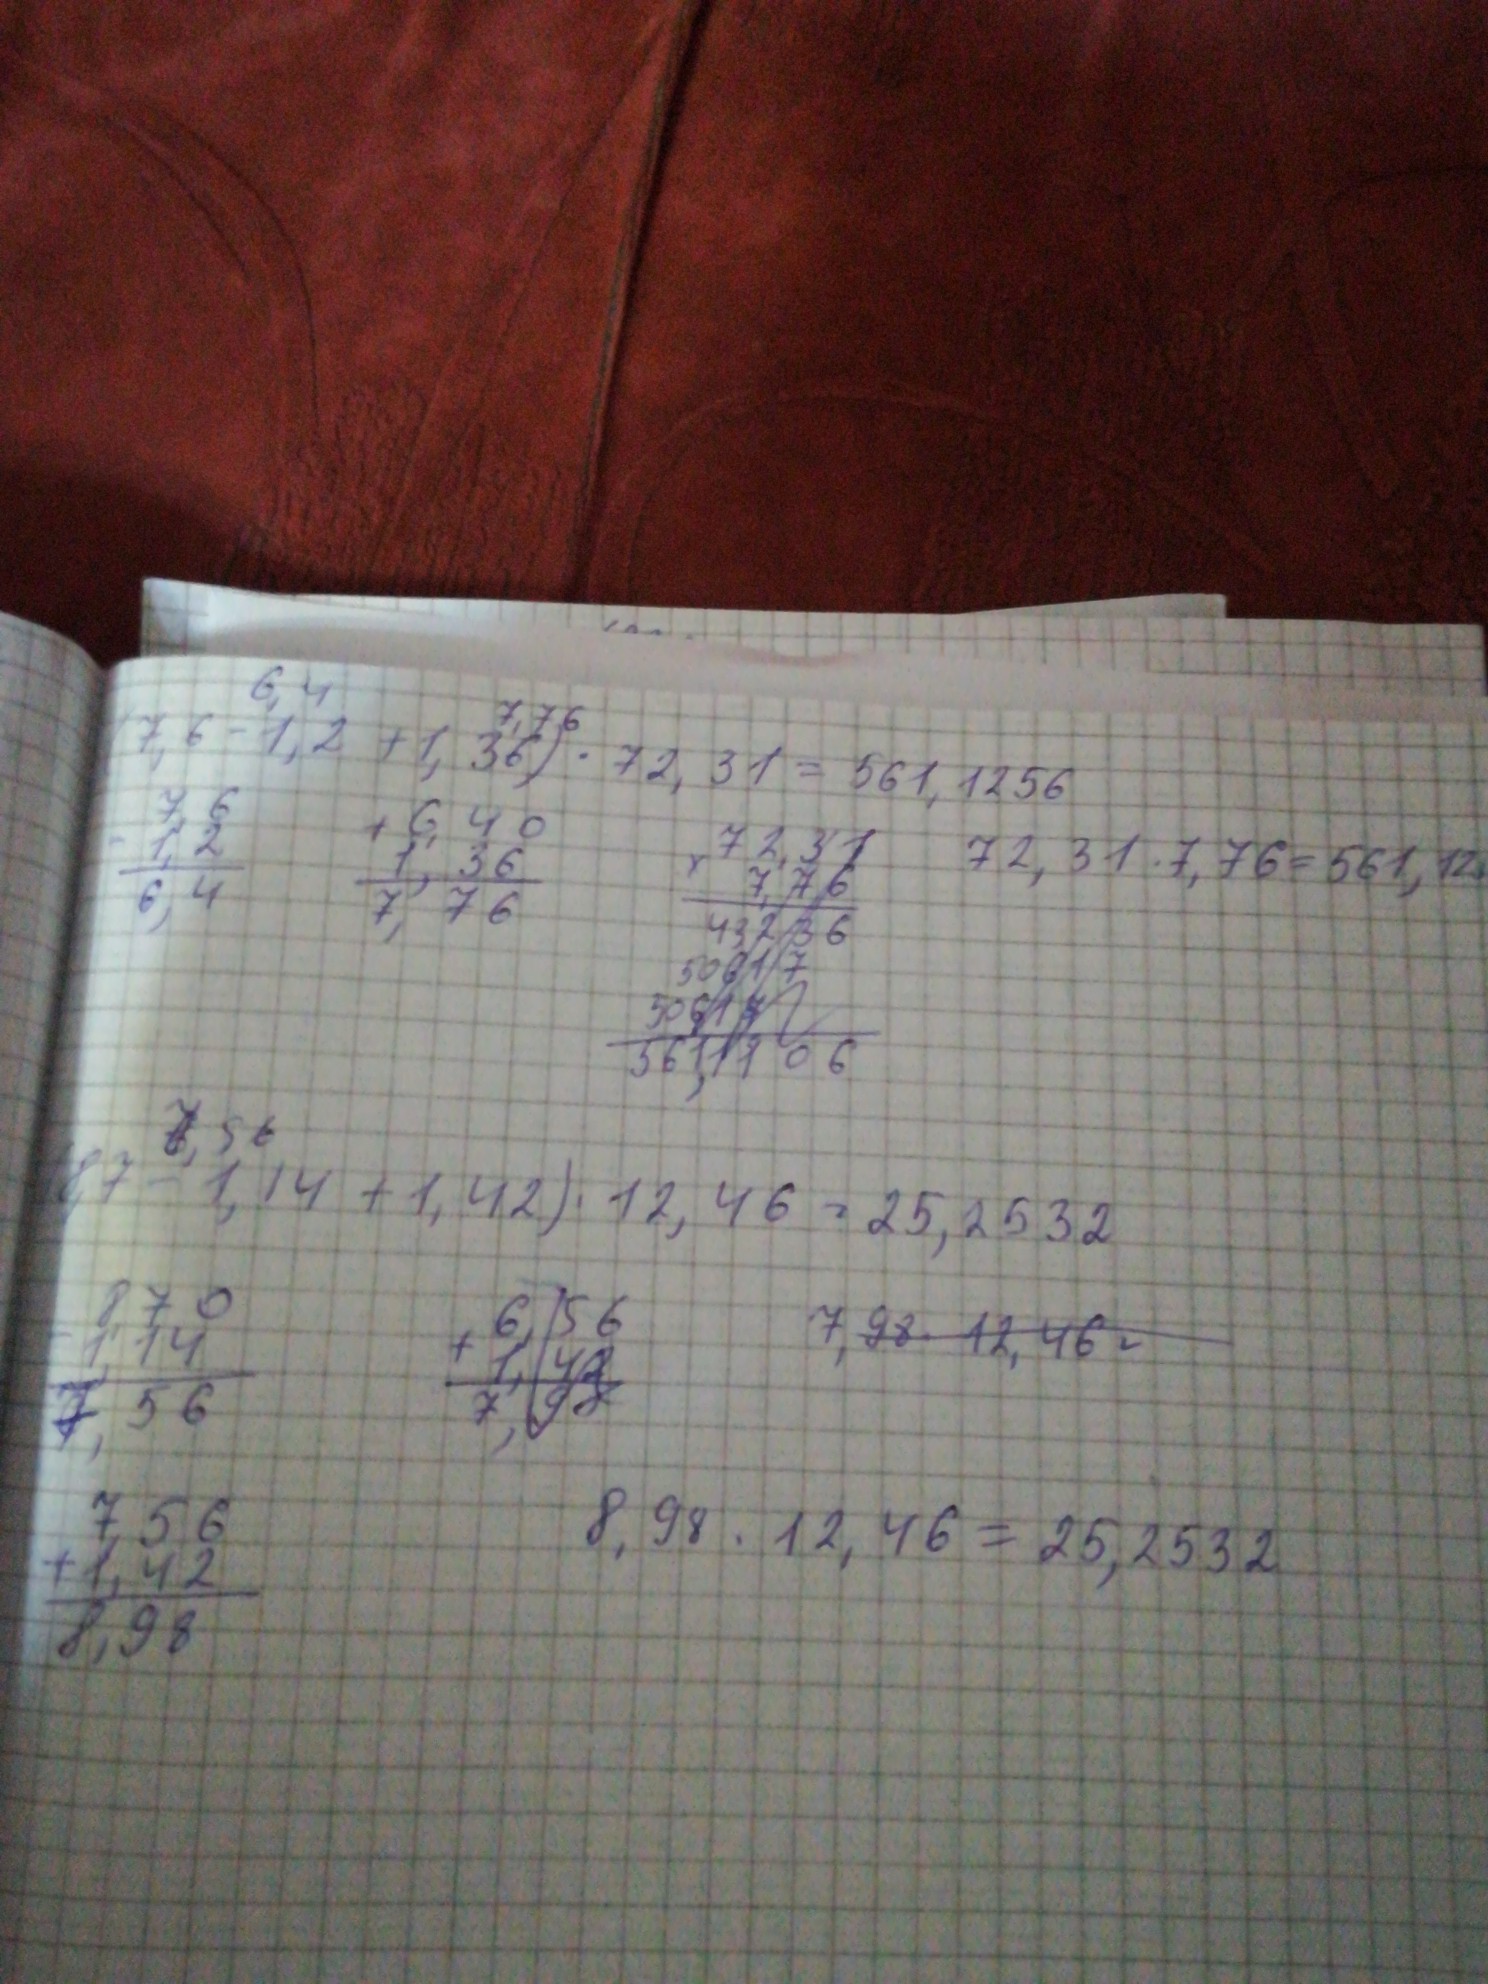 6,4
7,76
(7,6 - 1,2 + 1,36) · 72,31 = 561,1256
7,6
- 1,2
6,4
+ 6,40
1,36
7,76
72,31
x 7,76
43236
50617
50617
561,1106
72,31 · 7,76 = 561,12
7,56
(8,7 - 1,14 + 1,42) · 12,46 = 25,2532
8,70
- 1,14
7,56
+ 6,56
1,42
7,98
7,98 · 12,46 =
7,56
+ 1,42
8,98
8,98 · 12,46 = 25,2532